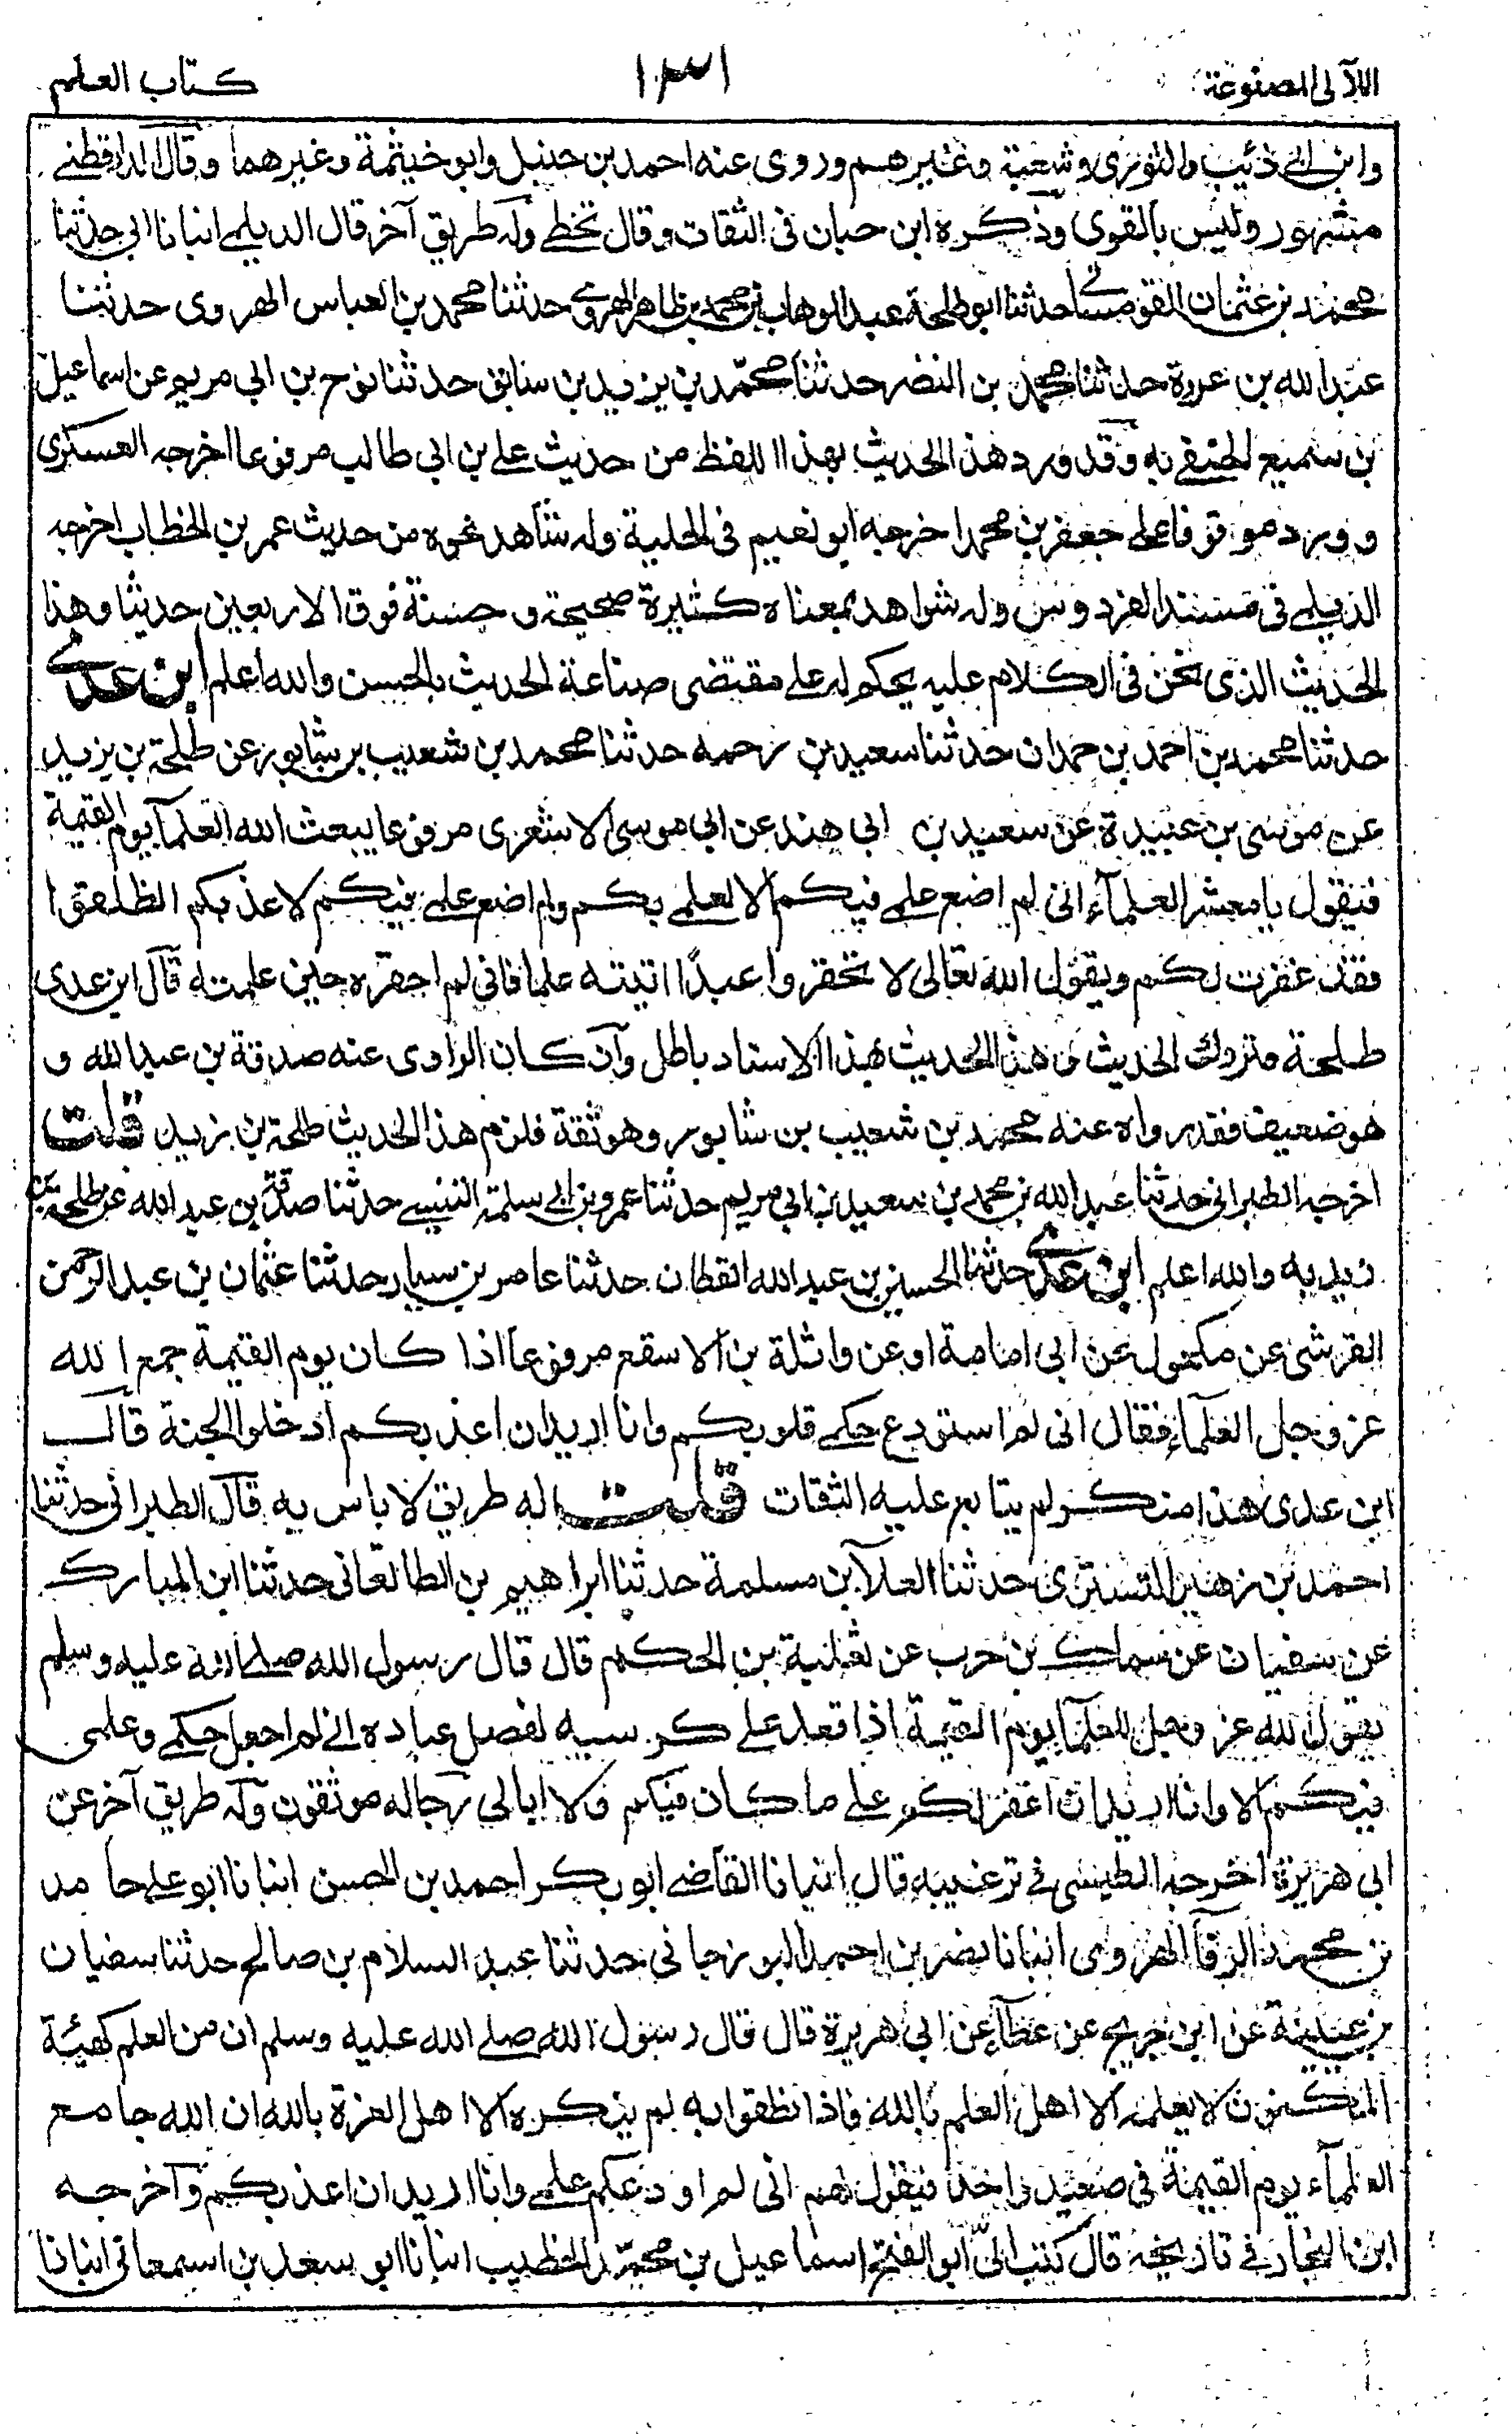 اللآلى المصنوعة
١٣١
كتاب العلم
وابن ابى ذئيب والثورى وشعبة وغيرهم وروى عنه احمد بن حنبل وابو خيثمة وغيرهما وقال الدارقطنى
مشهور وليس بالقوى وذكره ابن حبان فى الثقات وقال تخطئ وله طريق آخر قال الديلمى انبانا ابى حدثنا
محمد بن عثمان القومسانى حدثنا ابو طلحة عبد الوهاب بن محمد بن طاهر الهروى حدثنا محمد بن العباس الهروى حدثنا
عبد الله بن عروة حدثنا محمد بن النضر حدثنا محمد بن يزيد بن سابق حدثنا نوح بن ابى مريم عن اسماعيل
بن سميع الحنفى به وقد ورد هذ الحديث بهذا اللفظ من حديث على بن ابى طالب مرفوعا اخرجه العسكرى
وورد موقوفا على جعفر بن محمد اخرجه ابو نعيم فى الحلية وله شاهد نحوه من حديث عمر بن الخطاب اخرجه
الديلمى فى مسند الفردوس وله شواهد بمعناه كثيرة صحيحة وحسنة فوق الاربعين حديثا وهذا
الحديث الذى نحن فى الكلام عليه يحكم له على مقتضى صناعة الحديث بالحسن والله اعلم ابن عدى
حدثنا محمد بن احمد بن حمدان حدثنا سعيد بن رحمه حدثنا محمد بن شعيب بن شابور عن طلحة بن يزيد
عن موسى بن عبيدة عن سعيد بن ابى هند عن ابى موسى الاشعرى مرفوعا يبعث الله العلمآ يوم القيمة
فيقول يا معشر العلمآء انى لم اضع علمى فيكم الا لعلمى بكم ولم اضع علمى فيكم لاعذبكم انطلقوا
فقد غفرت لكم ويقول الله تعالى لا تحقروا عبدًا اتيته علما فانى لم احقره حين علمته قال ابن عدى
طلحة متروك الحديث وهذا الحديث بهذا الاسناد باطل وان كان الراوى عنه صدقة بن عبد الله و
هو ضعيف فقد رواه عنه محمد بن شعيب بن شابور وهو ثقة فلزم هذ الحديث طلحة بن يزيد قلت
اخرجه الطبرانى حدثنا عبد الله بن محمد بن سعيد بن ابى مريم حدثنا عمرو بن ابى سلمة التنيسى حدثنا صدقة بن عبد الله عن طلحة بن
زيد به والله اعلم ابن عدى حدثنا الحسين بن عبد الله القطان حدثنا عامر بن سيار حدثنا عثمان بن عبد الرحمن
القرشى عن مكحول عن ابى امامة او عن واثلة بن الاسقع مرفوعا اذا كان يوم القيمة جمع الله
عز وجل العلمآء فقال انى لم استودع حكمى قلوبكم وانا اريد ان اعذبكم ادخلوا الجنة قال
ابن عدى هذا منكر لم يتابع عليه الثقات قلت له طريق لا باس به قال الطبرانى حدثنا
احمد بن زهير التسترى حدثنا العلآ بن مسلمة حدثنا ابراهيم بن الطالقانى حدثنا ابن المبارك
عن سفيان عن سماك بن حرب عن ثعلبة بن الحكم قال قال رسول الله صلى الله عليه وسلم
يقول الله عز وجل للعلمآ يوم القيمة اذا قعد على كرسيه لفصل عباده انى لم اجعل حكمى وعلمى
فيكم الا وانا اريد ان اغفر لكم على ما كان فيكم ولا ابالى رجاله موثقون وله طريق آخر عن
ابى هريرة اخرجه الطبسى فى ترغيبه قال انبانا القاضى ابو بكر احمد بن الحسن انبانا ابو على حامد
بن محمد الرفآ الهروى انبانا نصر بن احمد البوزجانى حدثنا عبد السلام بن صالح حدثنا سفيان
بن عيينة عن ابن جريج عن عطآء عن ابى هريرة قال قال رسول الله صلى الله عليه وسلم ان من العلم كهيئة
المكنون لا يعلمه الا اهل العلم بالله فاذا نطقوا به لم ينكره الا اهل الغرة بالله ان الله جامع
العلمآء يوم القيمة فى صعيد واحد فيقول لهم انى لم اودعكم علمى وانا اريد ان اعذبكم واخرجه
ابن النجار فى تاريخه قال كتب الىّ ابو الفتح اسماعيل بن محمد الخطيب انبانا ابو سعد بن اسمعانى انبانا